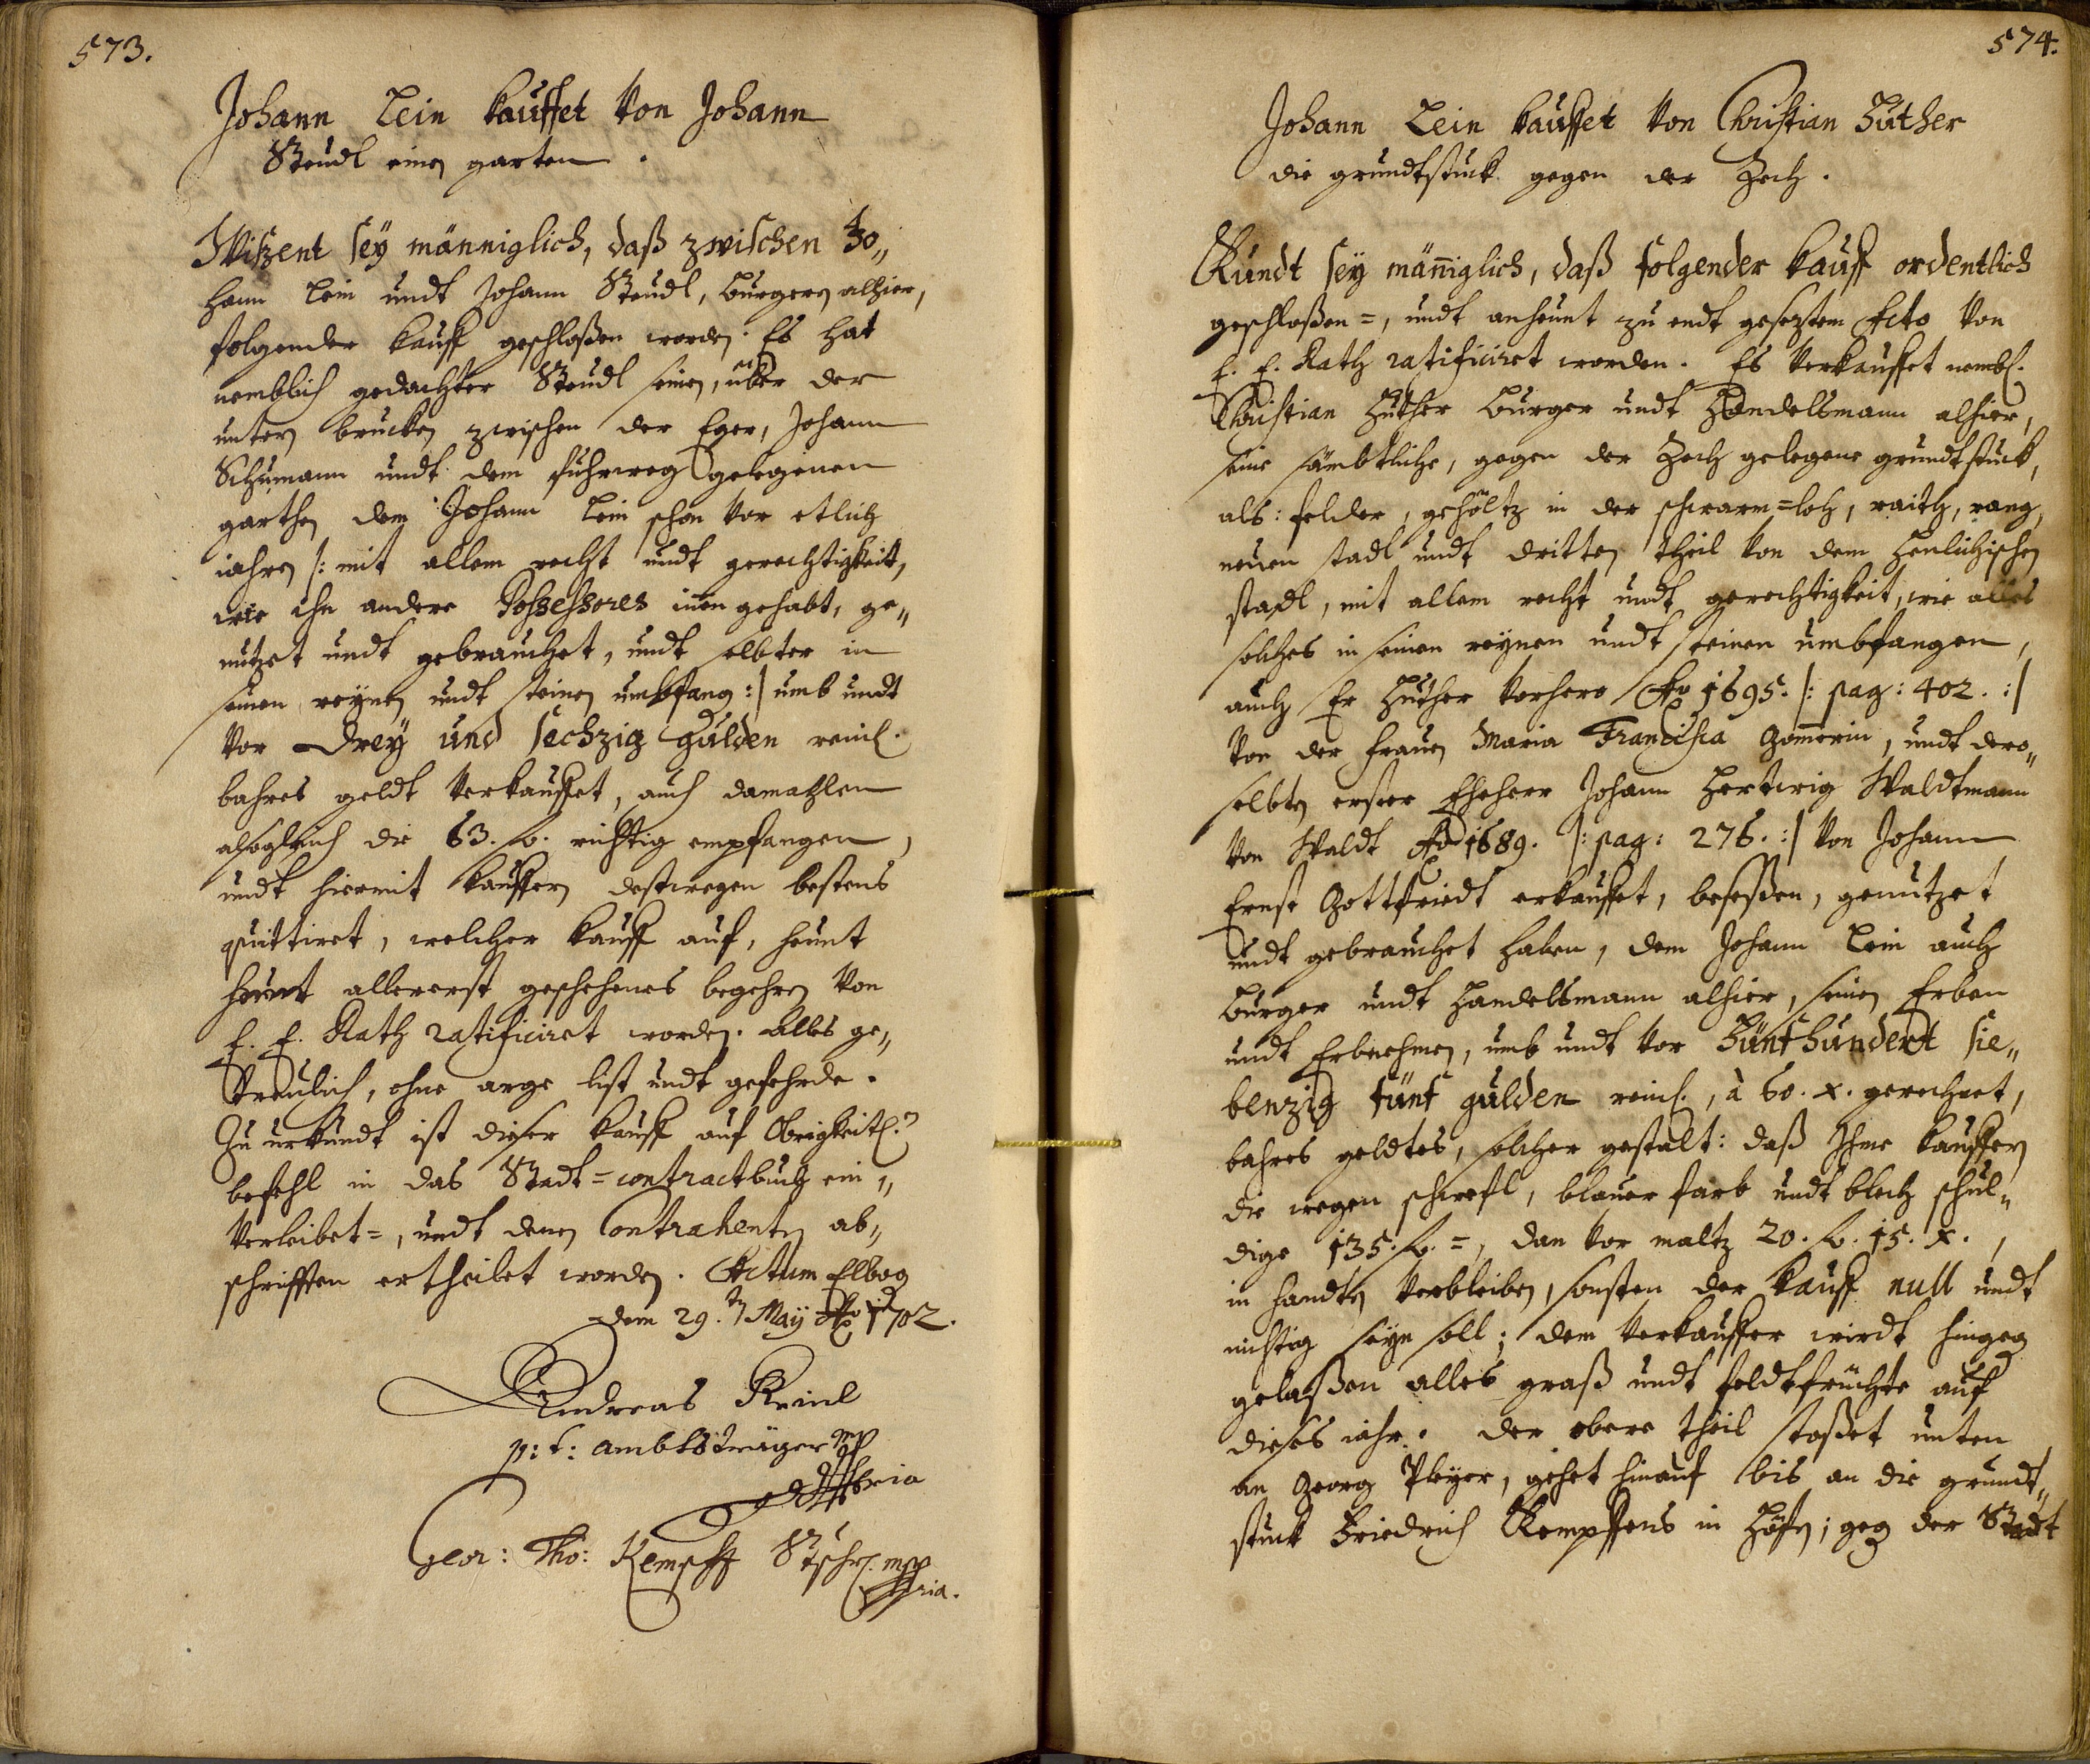 573.
Johann Lein kauffet von Johann
Steudl einen garten.
Wißent seÿ männiglich, daß zwischen Jo„
hann Lein undt Johann Steudl, burgern alhier,
folgender kauff geschloßen worden: Es hat
nemblich gedachter Steudl seinen, über der
untern brucken zwischen der Eger, Johann
Schumann undt dem fuhrweg gelegenen
garthen dem Johann Lein schon vor etlich
iahren /: mit allem recht undt gerechtigkeit,
wie ihn andere Possessores innen gehabt, ge„
nutzet undt gebrauchet, undt selbter in
seinen reynen undt steinen umbfang :/ umb undt
vor Dreÿ und sechzig Gulden reinl.
bahres geldt verkauffet, auch damahlen
alsogleich die 63. fl. richtig empfangen,
undt hiermit kauffern deßtwegen bestens
quittiret, welcher kauff auf, heunt
heunt allererst geschehenes begehren von
E. E. Rath ratificiret worden. Alles ge„
treulich, ohne arge list undt gefehrde.
Zu urkundt ist dieser kauff auf Obrigkeitl.
befehl in das Stadt=contractbuch ein„
verleibet=, undt denen Contrahenten ab„
schrifften ertheilet worden. Actum Elbog
dem 29.ten May Ao 1702.
Andreas Reinl
p: t: ambtsträger mp
Geor: Tho: Kempff Stschr. mpp
ria.
574.
Johann Lein kauffet von Christian Huther
die grundtstuck gegen der Zech.
Kundt seÿ mäniglich, daß folgender kauff ordentlich
geschloßen=, undt anheunt zu endt geseztem Acto von
E. E. Rath ratificiret worden. Es verkauffet nembl.
Christian Huther burger undt Handelsmann alhier,
seine sämbtliche, gegen der Zech gelegene grundtstuck,
als: felder, gehöltz in der schwarm=loh, raith, rang,
neuen stadl undt dritten theil von dem
stadl, mit allem recht undt gerechtigkeit, wie alles
solches in seinen reynen undt steinen umbfangen,
auch Er Huther vorhero Ao 1695. /: pag: 402. :/
von der frauen Maria Francisca Gomerin, undt dero„
selbten erster Eheherr Johann Hertwig Waldtmann
von Waldt Ao 1689. /: pag: 276. :/ von Johann
Ernst Gottfriedt erkauffet, beseßen, genutzet
undt gebrauchet haben, dem Johann Lein auch
burger undt Handelsmann alhier, seinen Erben
undt Erbnehmen, umb undt vor Fünfhundert sie„
benzig fünf gulden reinl., à 60. x. gerechnet,
bahres geldtes, solcher gestalt: daß Ihme kauffern
die wegen schwefl, blauer farb undt blech schul„
dige 135. fl.=, dan vor maltz 20. fl. 15. x.,
in handten verbleiben, sonsten der kauff null undt
nichtig seyn soll; dem verkauffer wirdt hingeg
gelaßen alles graß undt feldtfrüchte auf
dieses iahr. der obere theil stoßet unten
an Georg Pleyer, gehet hinauf bis an die grundt„
stuck Friedrich Kempffens in Höfen; geg der Stadt